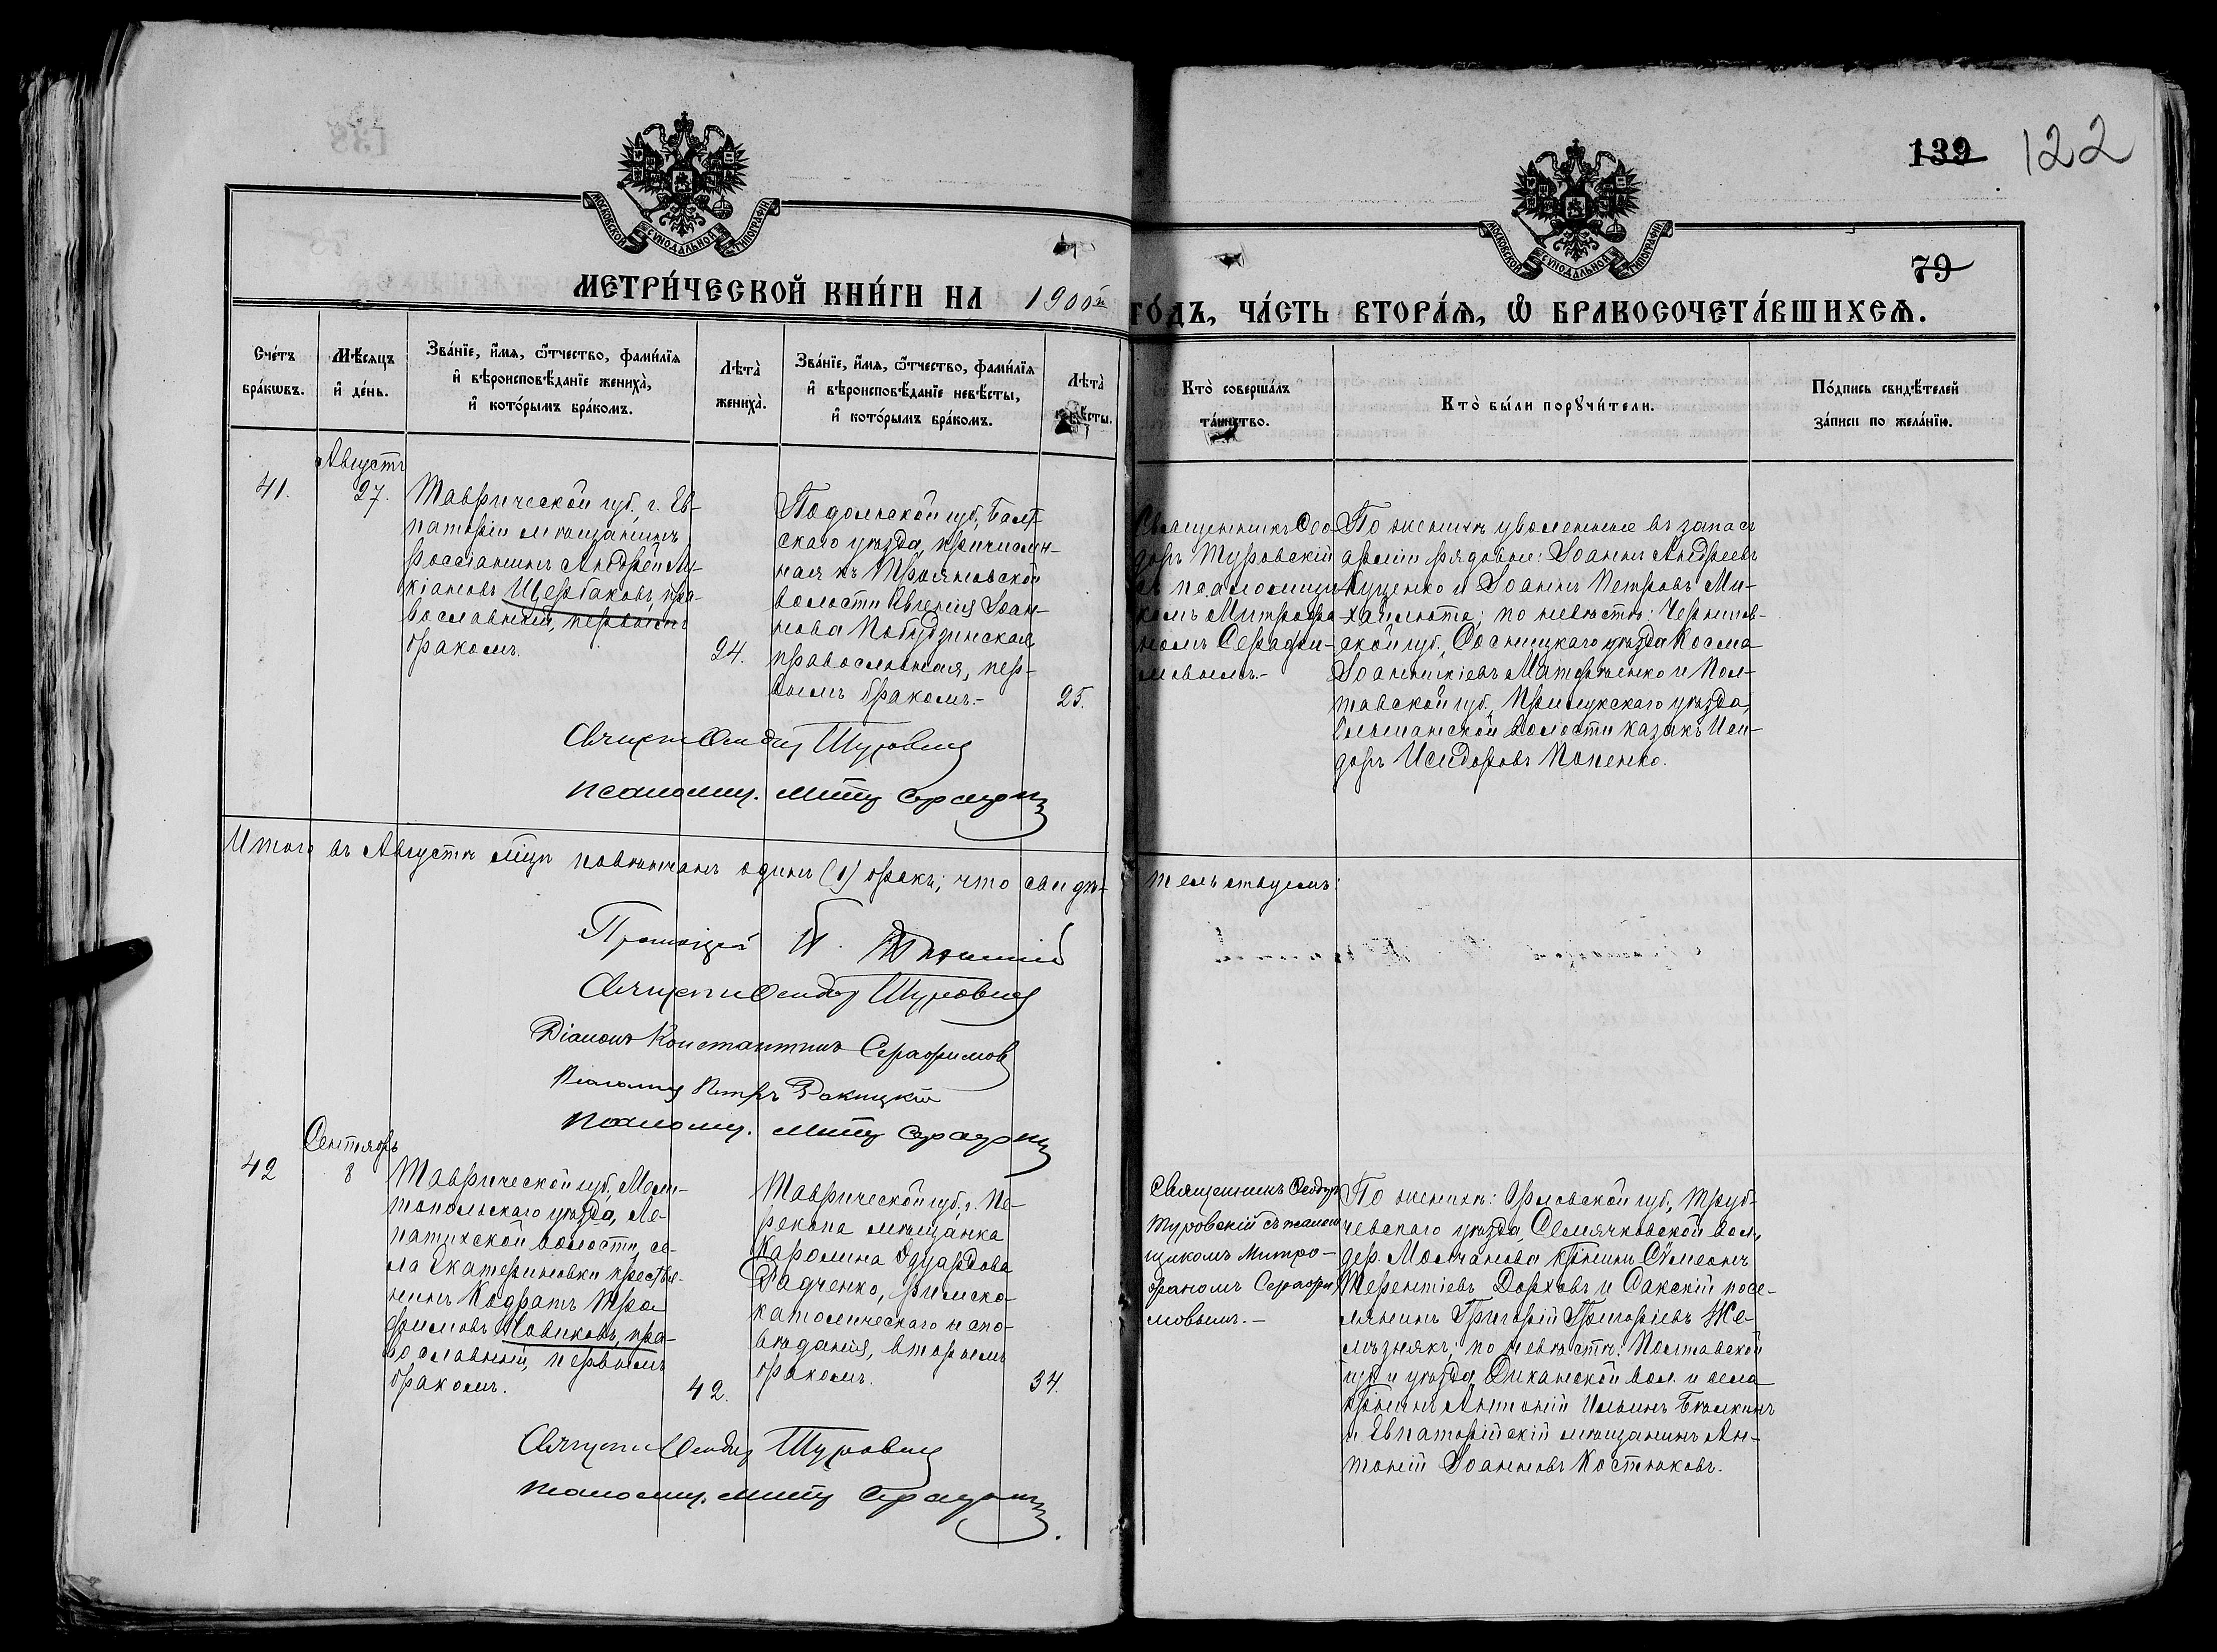 139 122
79
МОСКОВСКОЙ СѴНОДАЛЬНОЙ ТИПОГРАФІИ
МОСКОВСКОЙ СѴНОДАЛЬНОЙ ТИПОГРАФІИ
МЕТРИ́ЧЕСКОЙ КНИ́ГИ НА 1900й
ГО́ДЪ, ЧА́СТЬ ВТОРА́Ѧ, Ѡ҆ БРАКОСОЧЕТА́ВШИХСѦ.
Сче́тъ
бра́кѡвъ.
Мѣ́сяцъ
и҆ де́нь.
Зва́нїе, и҆́мѧ, ѻ҆́тчество, фами́лїѧ
и҆ вѣроисповѣ́данїе жениха̀,
и҆ кото́рымъ бра́комъ.
Лѣта̀
жениха̀.
Зва́нїе, и҆́мѧ, ѻ҆́тчество, фами́лїѧ
и҆ вѣроисповѣ́данїе невѣ́сты,
и҆ кото́рымъ бра́комъ.
Лѣта̀
невѣ́сты.
Кто̀ соверша́лъ
та́инство.
Кто̀ бы́ли порꙋчи́тели.
По́дпись свидѣ́телей
за́писи по жела́нїю.
41.
Августъ
27.
Таврической губ. г. Ев-
паторіи мѣщанинъ
россіанинъ Андрей Лу-
кіановъ Щербаковъ, пра-
вославный, первымъ
бракомъ.
24.
Подольской губ., Балт-
скаго уѣзда, причислен-
ная къ Трояновской
волости Евгенія Іоан-
нова Побудзинская,
православная, пер-
вымъ бракомъ.-
25.
Священникъ Ѳео-
доръ Туровскій
съ псаломщи-
комъ Митрофа-
номъ Серафи-
мовымъ.-
По женихѣ уволенные въ запасъ
арміи рядовые: Іоаннъ Андреевъ
Куценко и Іоаннъ Петровъ Ми-
хайлюта; по невѣстѣ: Чернигов-
ской губ., Сосницкаго уѣзда Косма
Іоанникіевъ Матвѣенко и Пол-
тавской губ., Прилукскаго уѣзда,
Ольшанской волости казакъ Иси-
доръ Исидоровъ Попенко.
Священ Ѳеодор Туровскій
псаломщ. Митр Серафим
Итого въ Августѣ м-цѣ повѣнчанъ одинъ (1) бракъ; что свидѣ-
тельствуемъ:
Протоіерей
Священ Ѳеодор Туровскій
Діаконъ Константинъ Серафимовъ
Псаломщ Петръ Ракицкій
Псаломщ. Митр Серафим
42
Сентябрь
8
Таврической губ., Мели-
топольскаго уѣзда, Ле-
патихской волости, се-
ла Екатериновки крестья-
нинъ Кодратъ Тро-
фимовъ Новиковъ, пра-
вославный, первымъ
бракомъ.
42.
Таврической губ., г. Пе-
рекопа мѣщанка
Каролина Эдуардова
Радченко, римско-
католическаго испо-
вѣданія, вторымъ
бракомъ.
34.
Священникъ Ѳеодоръ
Туровскій съ псалом-
щикомъ Митро-
фаномъ Серафи-
мовымъ.-
По женихѣ: Орловской губ., Труб-
чевскаго уѣзда, Семячковской вол.,
дер. Молчанова кр-нинъ Сѵмеонъ
Терентіевъ Дорховъ и Сакскій посе-
лянинъ Григорій Григоріевъ Же-
лѣзнякъ; по невѣстѣ: Полтавской
губ. и уѣзда, Диканской вол. и села
кр-нинъ Антоній Ильинъ Бѣлкинъ
и Евпаторійскій мѣщанинъ Ан-
тоній Іоанновъ Костюковъ.
Священ Ѳеодор Туровскій
псаломщ. Митр Серафим